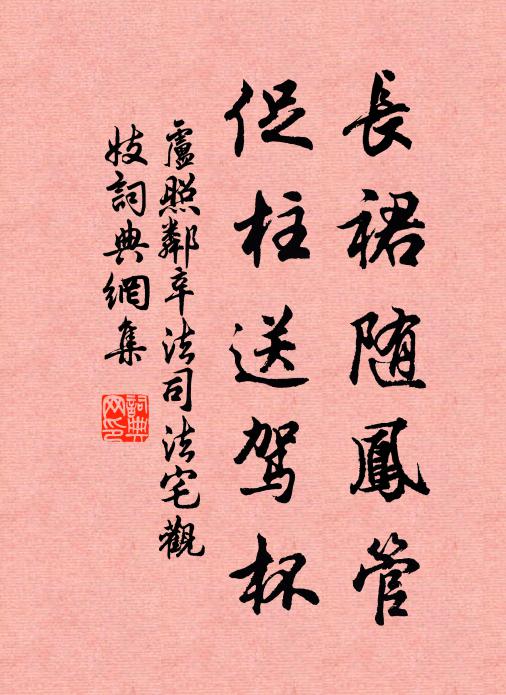 長裙随鳳管
促柱送鸞杯
盧照鄰辛法司法宅觀
妓詞典網集
詞典网印